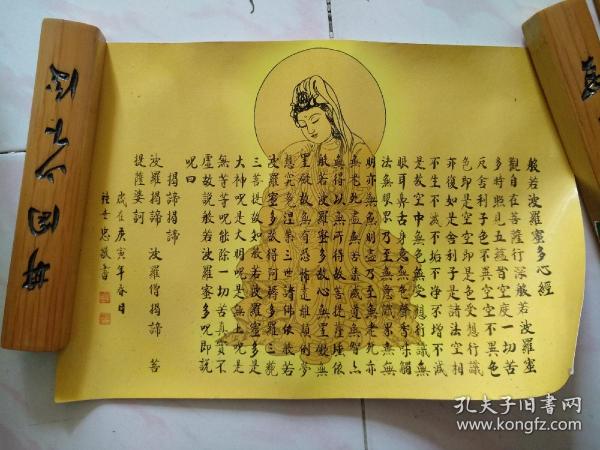 般若波羅蜜多心經
觀自在菩薩行深般若波羅蜜
多時照見五蘊皆空度一切苦
厄舍利子色不異空空不異色
色即是空空即是色受想行識
亦復如是舍利子是諸法空相
不生不滅不垢不淨不增不減
是故空中無色無受想行識無
眼耳鼻舌身意無色聲香味觸
法無眼界乃至無意識界無無
明亦無無明盡乃至無老死亦
無老死盡無苦集滅道無智亦
無得以無所得故菩提薩埵依
般若波羅蜜多故心無罣礙無
罣礙故無有恐怖遠離顛倒夢
想究竟涅槃三世諸佛依般若
波羅蜜多故得阿耨多羅三藐
三菩提故知般若波羅蜜多是
大神呪是大明呪是無上呪是
無等等呪能除一切苦真實不
虛故說般若波羅蜜多呪即說
呪曰
揭諦揭諦
波羅揭諦 波羅僧揭諦 菩
提薩婆訶
歲在庚寅年春日
孔夫子旧书网
www.kongfz.com